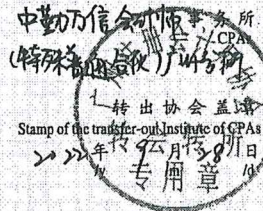 中勤万信会计师事务所
CPAs
(特殊普通合伙)广州分所
转出协会盖章
Stamp of the transfer-out Institute of CPAs
2022年9月28日
/y /m /d
专用章